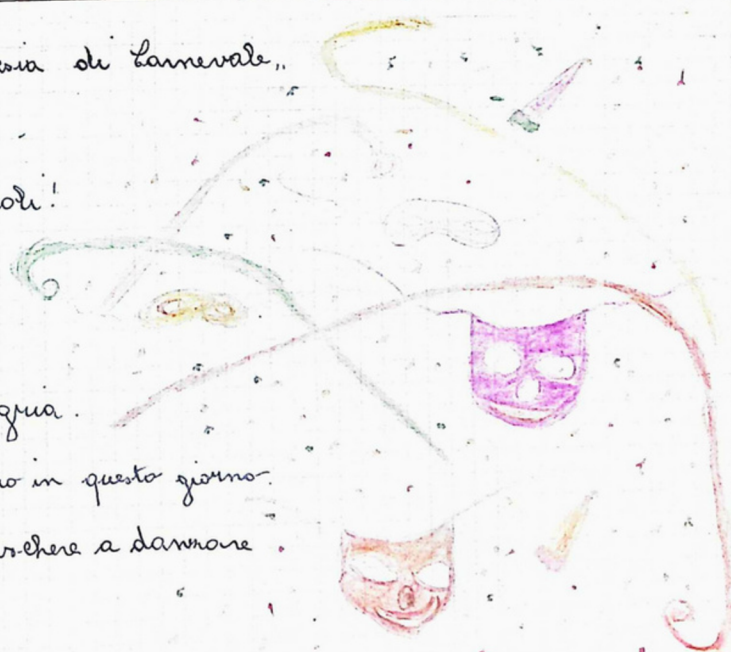 sia di Carnevale„
oli!
gria.
no in questo giorno.
schere a danzare